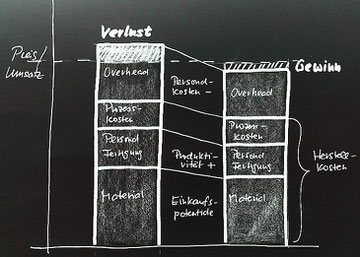 Verlust
Preis/
Umsatz
Gewinn
Overhead
Personal-
kosten -
Overhead
Prozess-
kosten
Prozess-
kosten
Personal
Fertigung
Produkti-
vität +
Personal
Fertigung
Herstell-
kosten
Material
Einkaufs-
potentiale
Material